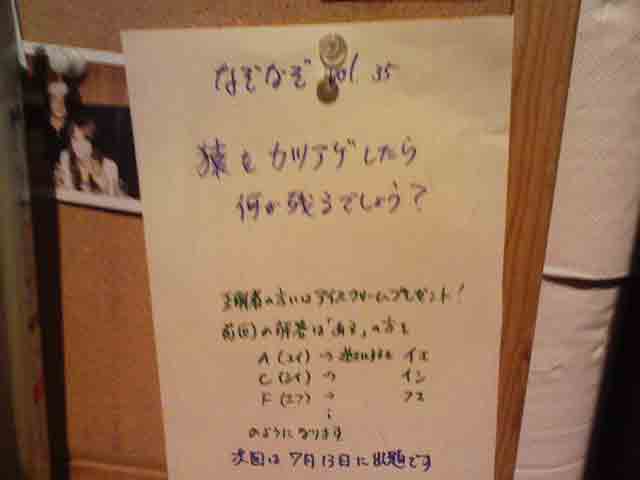 なぞなぞ vol. 35
猿をカツアゲしたら
何が残るでしょう？
正解者の方にはアイスクリームプレゼント！
前回の解答は「ある」の方を
A (エイ) → 逆にすると イエ
C (シイ) → イシ
F (エフ) → フエ
のようになります
次回は 7月13日に出題です